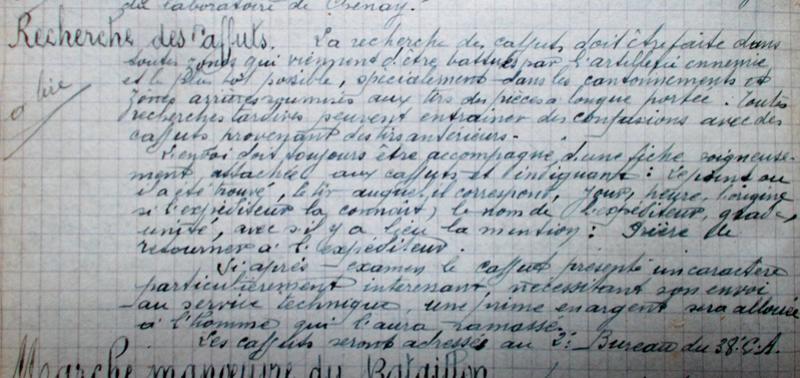 du laboratoire de Chenay.
Recherche des Caffuts. La recherche des caffuts doit être faite dans
toutes zones qui viennent d'être battues par l'artillerie ennemie
et le plus tot posible, spécialement dans les cantonnements et
zônes arrières soumises aux tirs des pièces a longue portée : toutes
recherches tardives peuvent entrainer des confusions avec des
caffuts provenant des tirs anterieurs.
à lire
L'envoi doit toujours être accompagné d'une fiche soigneuse-
ment attachée aux caffuts et indiquant : le point ou
il a été trouvé, le tir auquel il correspond, jour, heure, l'origine
si l'expéditeur la connait, le nom de l'expéditeur, grade,
unité, avec s'il y a lieu la mention : Prière de
retourner à l'expéditeur.
Si après - examen le caffut présente un caractère
particulièrement interessant, nécessitant son envoi
au service technique, une prime en argent sera allouée
à l'homme qui l'aura ramassé.
Les caffuts seront adressés au 2e Bureau du 38e C.A.
Marche manoeuvre du Bataillon